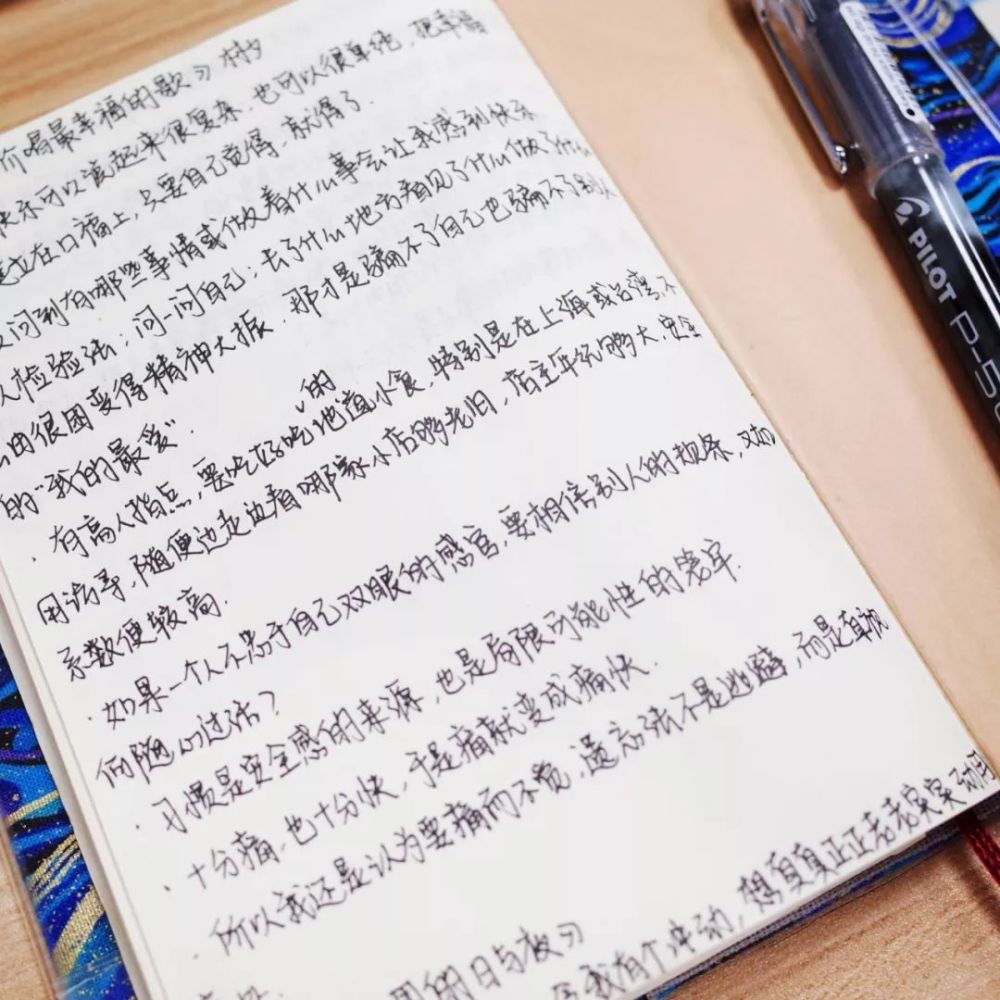 们唱最幸福的歌》 林夕
快乐可以说起来很复杂,也可以很单纯,把幸福
建立在口福上,只要自己觉得,就得了.
问到有哪些事情或做着什么事会让我感到快乐
检验法:问一问自己:去了什么地方看见了什么做
由很困变得精神大振,那才是骗不了自己也骗不了别人
的"我的最爱".
· 有高人指点,要吃好吃的地道小食,特别是在上海或台湾,不
用访寻,随便边走边看哪家小店够老旧,店主年纪够大,安全
系数便较高.
· 如果一个人不忠于自己双眼的感官,要相信别人的规条,又如
何随心过活?
· 习惯是安全感的来源,也是局限可能性的笼牢.
· 十分痛,也十分快,于是痛就变成痛快.
· 所以我还是认为要痛而不觉,遗忘法不是逃避,而是直视
的日与夜》
我有个冲动,想真真正正老老实实动手
PILOT P-50